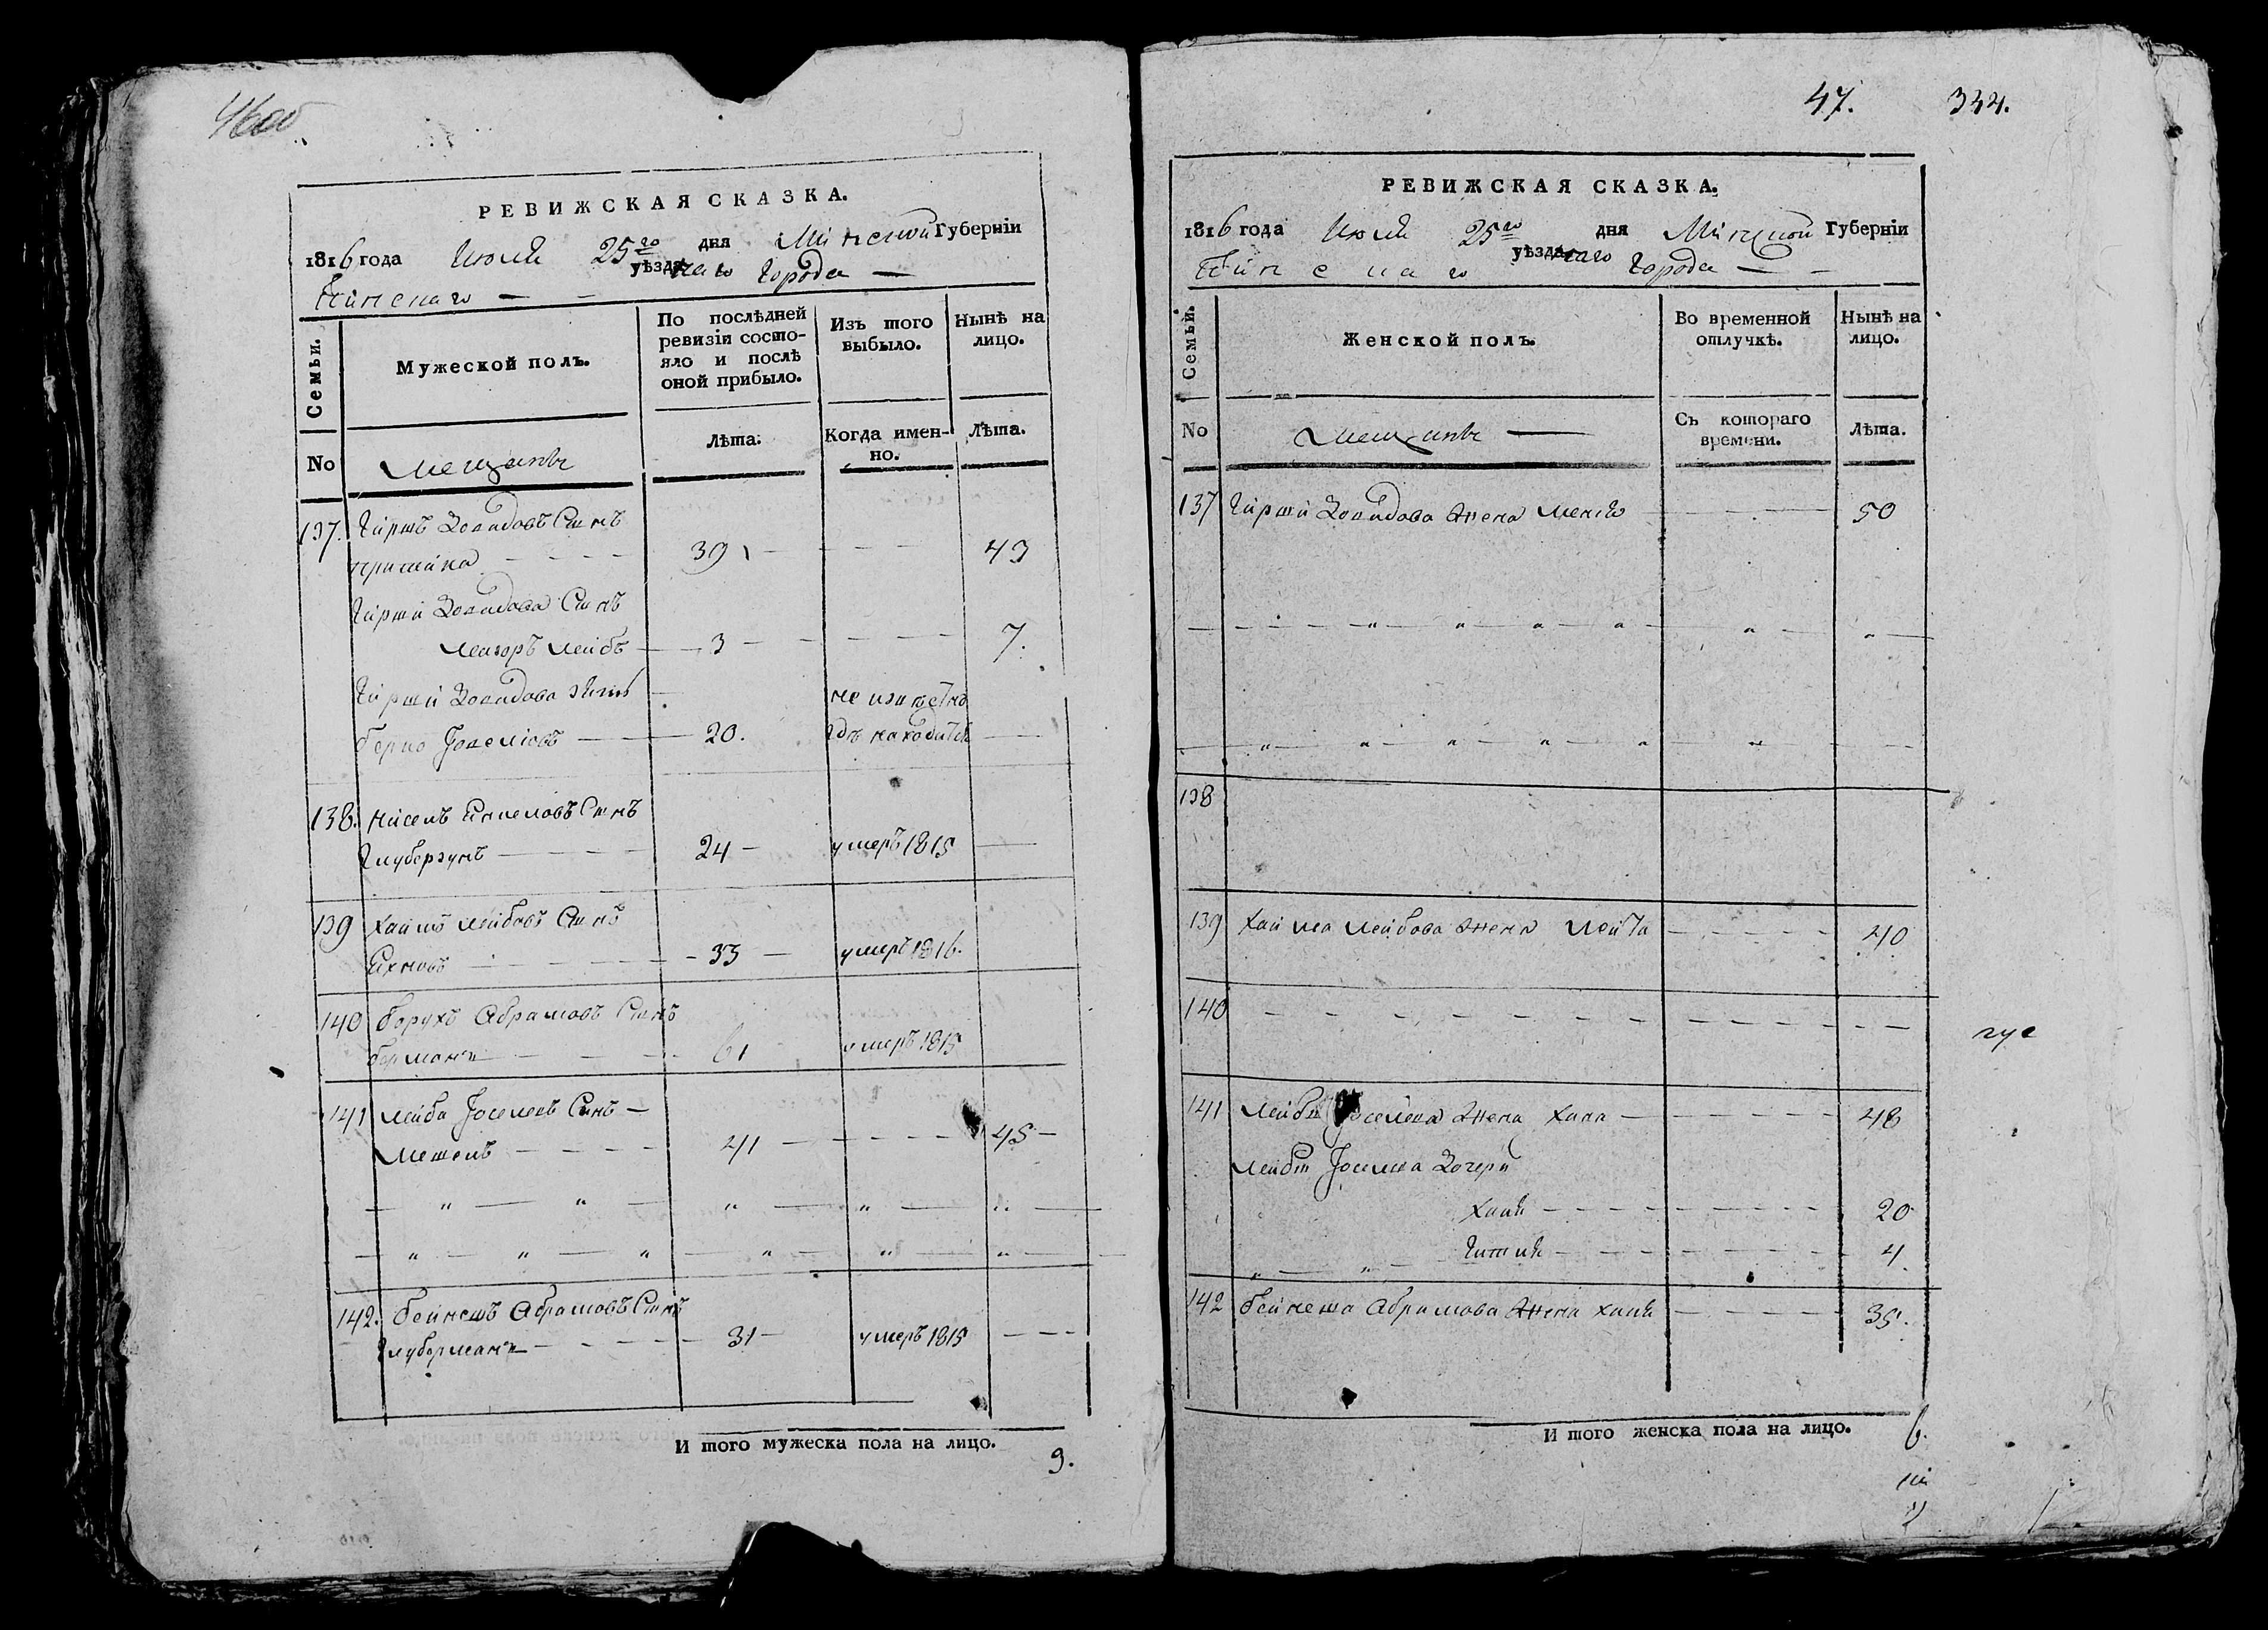 46об
РЕВИЖСКАЯ СКАЗКА.
1816 года Июля 25го дня Минской Губерніи
Пинскаго уѣзднаго города
Семьи.
Мужеской полъ.
По послѣдней
ревизіи состо-
яло и послѣ
оной прибыло.
Изъ того
выбыло.
Нынѣ на
лицо.
No
мещанъ
Лѣта.
Когда имен-
но.
Лѣта.
137. Гиршъ Довидовъ Сынъ
39 43
Гирша Довидова Сынъ
Лейзоръ Лейбъ 3 7.
Гирша Довидова зять не извѣстно
Берко 20. гдѣ находится
138. Нисель Сынъ
24 умеръ 1815
139 Хаимъ Лейбовъ Сынъ
33 умеръ 1816.
140 Борухъ Абрамовъ Сынъ
Берманъ 61 умеръ 1815
141 Лейба Іоселевъ Сынъ
41 45
142. Бейнешъ Абрамовъ Сынъ
Глуберманъ 31 умеръ 1815
И того мужеска пола на лицо.
3.
47. 344.
РЕВИЖСКАЯ СКАЗКА.
1816 года Июля 25го дня Минской Губерніи
Пинскаго уѣзднаго города
Семьи.
Женской полъ.
Во временной
отлучкѣ.
Нынѣ на
лицо.
No
мещанъ
Съ котораго
времени.
Лѣта.
137 Гирша Довидова жена 50
138
139 Хаима Лейбова жена 40
140
141 Лейбы Іоселева жена Хана 48
Лейбы Іоселева дочери
Хая 20
4.
142 Бейнеша Абрамова жена Хая 35.
И того женска пола на лицо. 6.